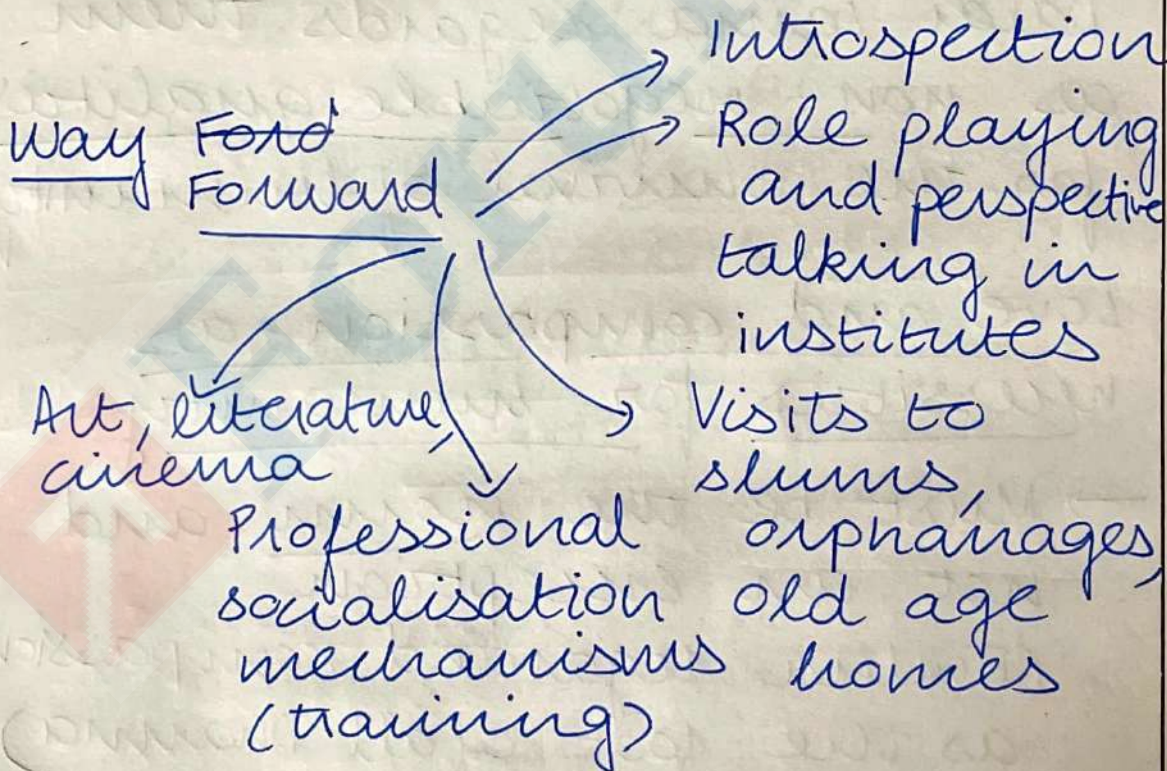 Way Ford
Forward
Introspection
Role playing
and perspective
talking in
institutes
Visits to
slums,
orphanages,
old age
homes
Professional
socialisation
mechanisms
(training)
Art, literature,
cinema